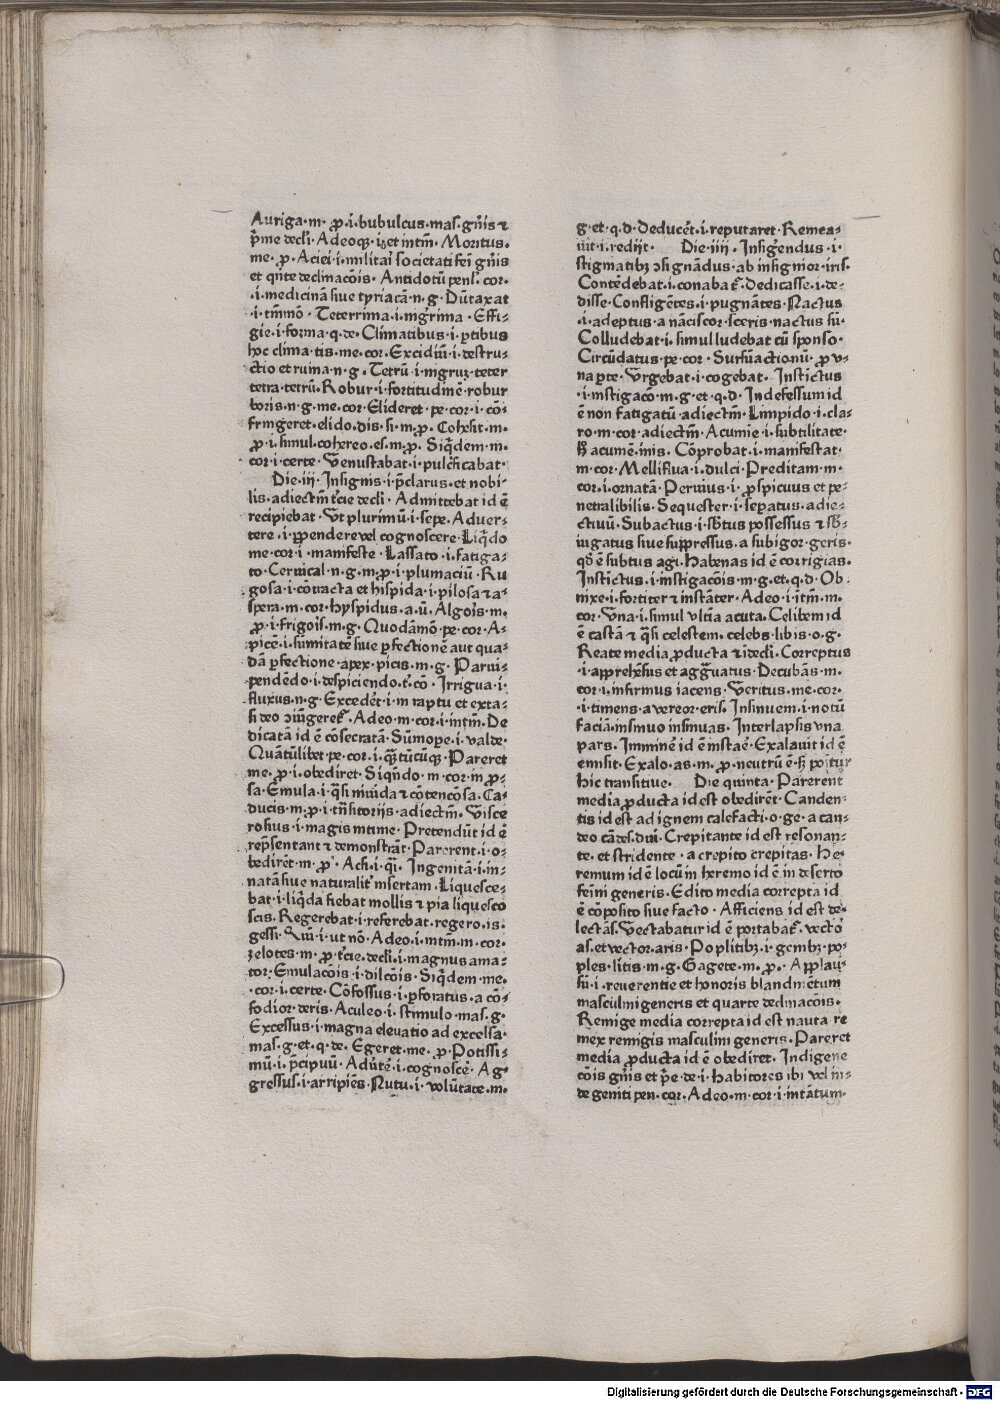 Auriga·m· ꝓ·i·bubulcus·mas·gñis ⁊
p̄me decli· Adeoqꝫ ·i·et intm̄· Moritus·
me· ꝓ· Aciei·i·militai societati feĩ gñis
et qn̄te declinacōis· Antidotū penl̓· cor·
·i·medicinā siue tyriacā·n·g· Dūtaxat
·i·tm̄mō · Teterrima·i·nigrima · Effi⸗
gie·i·forma·q·de· Climatibus·i·ꝑtibus
hoc clima·tis·me·cor· Excidiū·i·destru⸗
ctio et ruina·n·g · Tetrū·i·nigruꝫ·teter
tetra·tetrū· Robur·i·fortitudinē·robur
boris·n·g·me·cor· Elideret·pe·cor·i·cō⸗
fringeret·elido·dis·si·m·ꝓ· Cohesit·m·
ꝓ·i·simul·cohereo·es·m·ꝓ· Siq̄dem·m·
cor·i·certe· Venustabat·i·pulcrificabat·
Die·iij· Insignis·i·p̄clarus·et nobi⸗
lis·adiectm̄ t̓cie decli· Admittebat id ē
recipiebat· Vt plurimū·i·sepe· Aduer⸗
tere·i·ꝑpendere vel cognoscere· Liq̄do
me·cor·i·manifeste· Lassato·i·fatiga⸗
to· Ceruical·n·g·m·ꝓ·i·plumaciū· Ru
gosa·i·cōtracta et hispida·i·pilosa ⁊ a⸗
spera·m·cor·hyspidus·a·ū· Algois̄·m·
ꝓ·i·frigois̄·m·g· Quodāmō·pe·cor· A⸗
picē·i·sūmitatē siue ꝑfectionē aut qua⸗
dā ꝑfectione·apex·picis·m·g· Parui⸗
pendēdo·i·despiciendo·t̓·cō · Irrigua·i·
fluxus·n·g· Excedēt·i·in raptu et exta⸗
si deo ɔiūgeret᷑· Adeo·m·cor·i·intm̄· De
dicatā id ē cōsecratā· Sūmope·i·valde·
Quātūlibet·pe·cor·i·q̄tūcūqꝫ· Pareret
me·ꝓ·i·obediret· Siqn̄do·m·cor·in ꝓ⸗
sa· Emula·i·q̄si inuida ⁊ cōtencōsa· Ca⸗
ducis·m·ꝓ·i·trāsitorijs·adiectm̄· Visce
rosius·i·magis intime· Pretendūt id ē
rep̄sentant ⁊ demonstrāt· Parerent·i·o⸗
bedirēt·m·ꝓ· Acsi·i·q̄i· Ingenitā·i·in⸗
natā siue naturalit̓ insertam· Liquesce⸗
bat·i·liq̄da fiebat mollis ⁊ pia liquesco
scis· Regerebat·i·referebat·regero·is·
gessi· Quī·i·ut nō· Adeo·i·intm̄·m·cor·
zelotes·m·ꝓ·t̓cie·decli·i·magnus ama⸗
tor· Emulacōis·i·dilcōis· Siq̄dem·me·
·cor·i·certe· Cōfossus·i·ꝑforatus·a cō⸗
fodior·deris· Aculeo·i·stimulo·mas·g·
Excessus·i·magna eleuatio ad excelsa·
mas·g·et·q·de· Egeret·me·ꝓ· Potissi⸗
mū·i·p̄cipuū· Aduertē·i·cognoscē· Ag⸗
gressus·i·arripiēs· Nutu·i·volūtate·m·
g·et·q·d· Deducēt·i·reputaret· Remea⸗
uit·i·redijt· Die·iiij· Insigēndus·i·
stigmatibꝫ ɔsignādus·ab insignior·iris·
Contēdebat·i·conabat᷑· Dedicasse·i·de⸗
disse· Confligētes·i·pugnātes· Nactus
·i·adeptus·a nāciscor·sceris·nactus sū·
Colludebat·i·simul ludebat cū sponso·
Circūdatus·pe·cor· Sursūactionū·ꝓ v⸗
na ꝑte· Vrgebat·i·cogebat· Instictus
·i·instigacō·m·g·et·q·d· Indefessum id
ē non fatigatū·adiectm̄· Limpido·i·cla⸗
ro·m·cor·adiectm̄· Acumie·i·subtilitate·
hꝫ acumē·inis· Cōprobat·i·manifestat·
m·cor· Melliflua·i·dulci· Preditam·m·
cor·i·ornatā· Peruius·i·ꝑspicuus et pe⸗
netralibilis· Sequester·i·seꝑatus·adie⸗
ctiuū· Subactus·i·sb̄tus possessus ⁊ sb̄⸗
iugatus siue suppressus·a subigor·geris·
qd̄ ē subtus agi· Habenas id ē corrigias·
Instictus·i·instigacōis·m·g·et·q·d· Ob·
nixe·i·fortiter ⁊ instāter· Adeo·i·itm̄·m·
cor· Vna·i·simul vltīa acuta· Celibem id
ē castā ⁊ q̄si celestem·celebs·libis·o·g·
Reate media ꝓducta ⁊ idecli· Correptus
·i·apprehēsus et aggrauatus· Decubās·m·
cor·i·infirmus iacens· Veritus·me·cor·
·i·timens·a vereor·eris· Insinuem·i·notū
faciā·insinuo insinuas· Interlapsis vna
pars· Imminē id ē instaē· Exalauit id ē
emisit· Exalo·as·m·ꝓ·neutrū ē·hꝫ poītur
hic transitiue· Die quinta· Parerent
media ꝓducta id est obedirēt· Canden⸗
tis id est ad ignem calefacti·o·ge·a can⸗
deo cādes·dui· Crepitante id est resonan⸗
te·et stridente·a crepito crepitas· He⸗
remum id ē locū in heremo id ē in deserto
feini generis· Edito media correpta id
ē cōposito siue facto · Afficiens id est de⸗
lectās· Vectabatur id ē portabat᷑·vecto
as·et vector·aris· Poplitibꝫ·i·genibꝫ·po⸗
ples·litis·m·g· Gagete·m·ꝓ· Applau⸗
sū·i·reuerentie et honoris blandimētum
masculini generis et quarte declinacōis·
Remige media correpta id est nauta re
mex remigis masculini generis· Pareret
media ꝓducta id ē obediret· Indigene
cōis gñis et p̄e·de·i·habitores ibi vel in⸗
de geniti pen·cor· Adeo·m·cor·i·intātum·
Digitalisierung gefördert durch die Deutsche Forschungsgemeinschaft - DFG